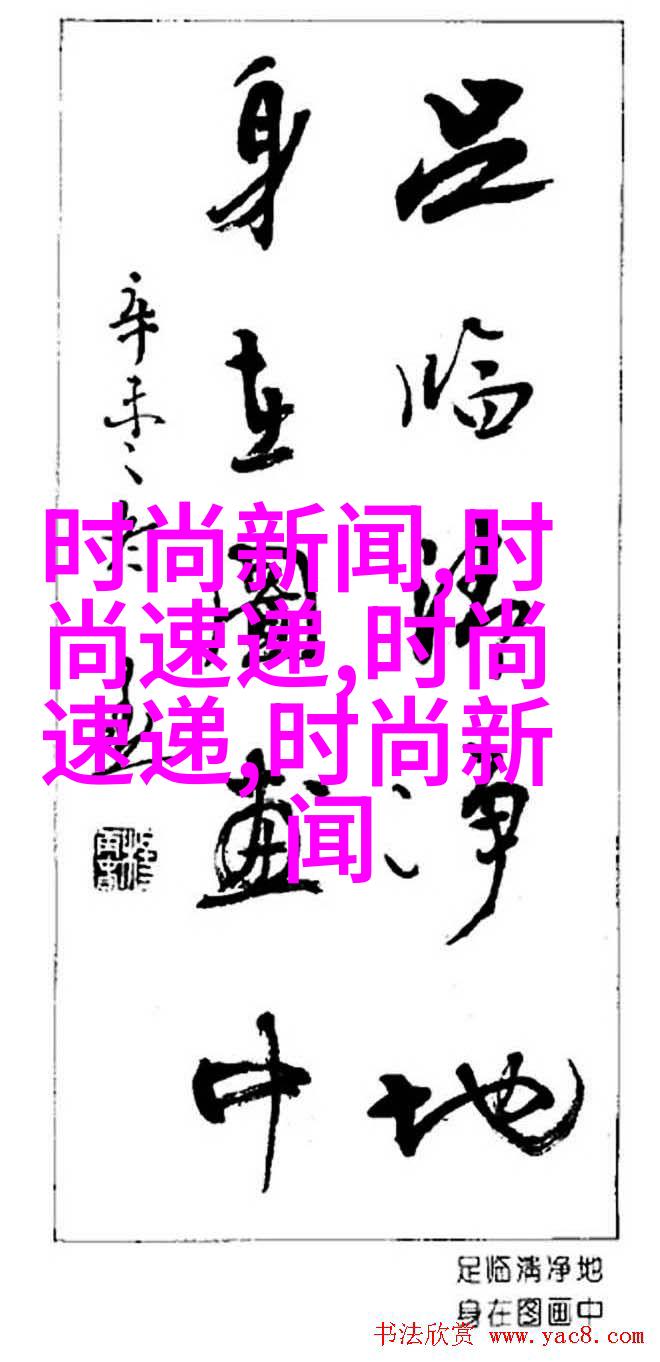 足临清净地
身在图画中
辛未之秋
时尚新闻,时
尚速递,时尚
速递,时尚新
闻
足临清净地
身在图画中
书法欣赏 www.yac8.com